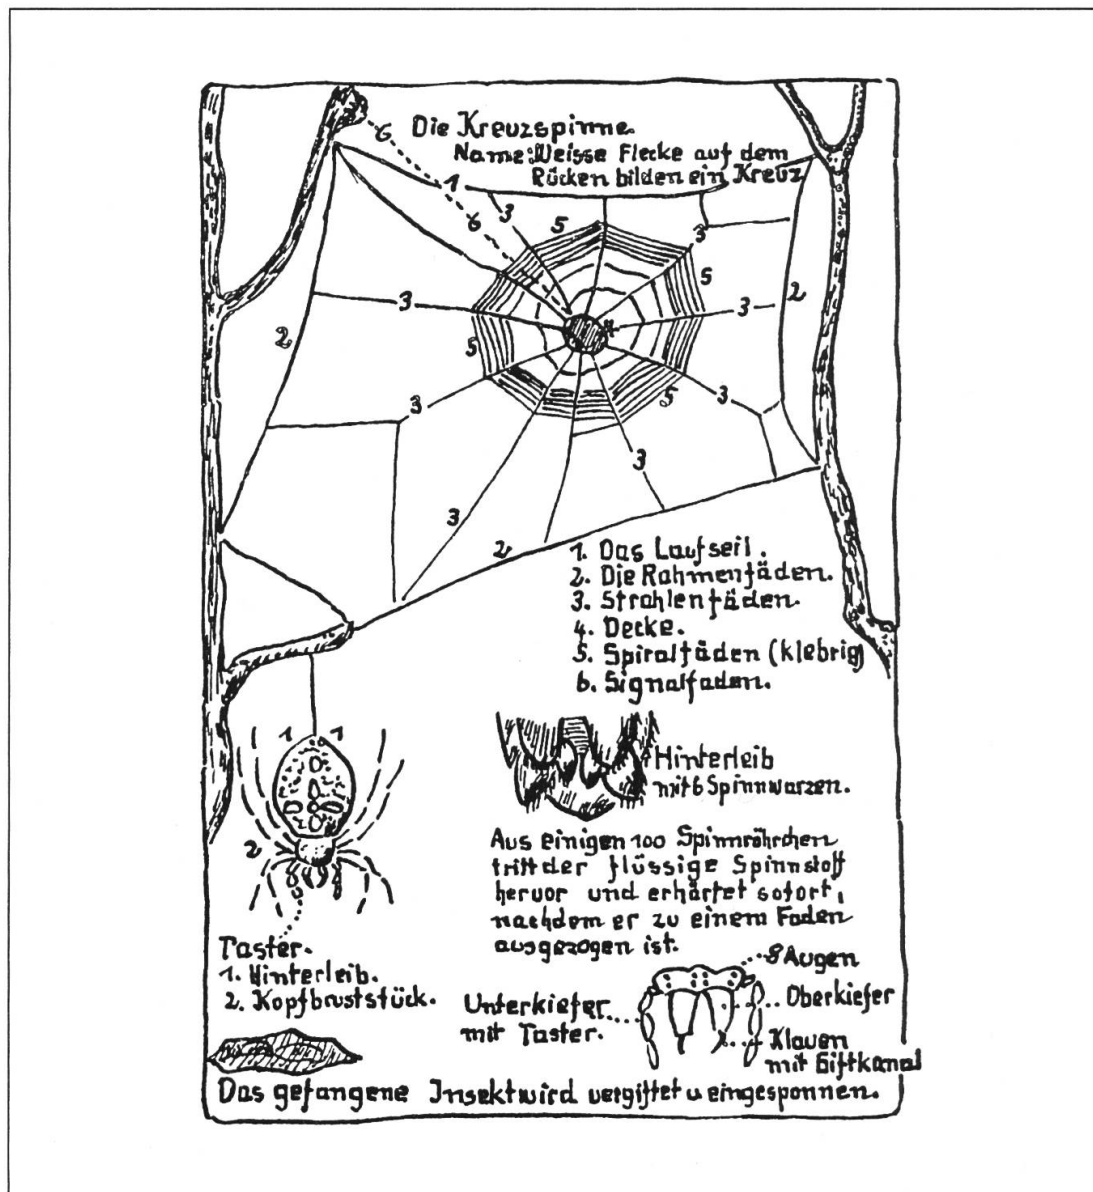 Die Kreuzspinne.
Name: Weisse Flecke auf dem
Rücken bilden ein Kreuz
6
1
6
3
5
3
5
3
3
2
2
4
5
3
3
5
3
3
2
1. Das Laufseil.
2. Die Rahmenfäden.
3. Strahlenfäden.
4. Decke.
5. Spiralfäden (klebrig)
6. Signalfaden.
1 1
2
Hinterleib
mit 6 Spinnwarzen.
Aus einigen 100 Spinnröhrchen
tritt der flüssige Spinnstoff
hervor und erhärtet sofort,
nachdem er zu einem Faden
ausgezogen ist.
Taster.
1. Hinterleib.
2. Kopfbruststück.
8 Augen
Oberkiefer
Unterkiefer
mit Taster.
Klauen
mit Giftkanal
Das gefangene Insekt wird vergiftet u eingesponnen.